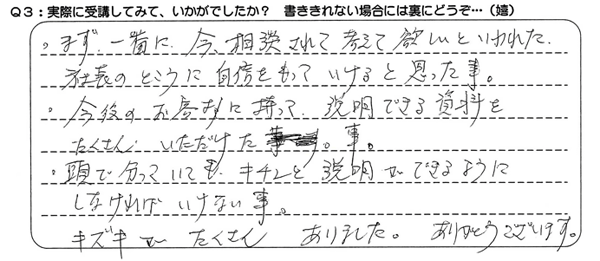 Q3：実際に受講してみて、いかがでしたか？ 書ききれない場合には裏にどうぞ…（嬉）
・まず、一番に、今、相談されて考えて欲しいといわれた、
社長のところに自信をもっていけると思った事。
・今後のお客さまに持って、説明できる資料を
たくさん、いただけた事。
・頭で分っていても、キチンと説明ができるように
しなければいけない事。
キズキがたくさんありました。ありがとうございます。